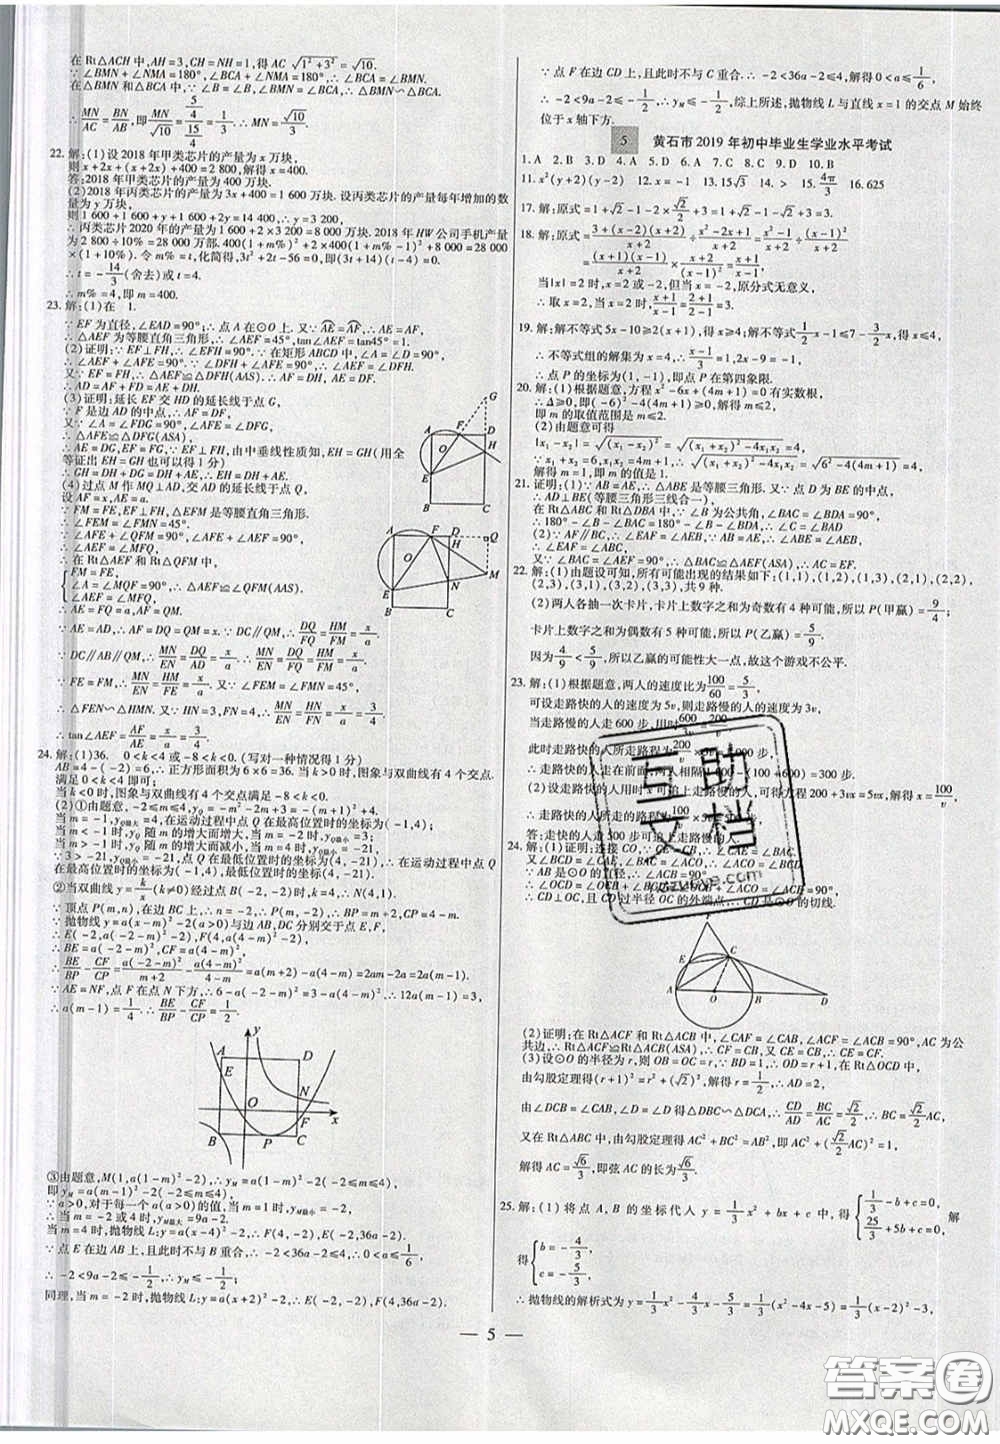 在 Rt△ACH 中,AH=3,CH=NH=1,得 AC √(1²+3²)=√10.
∵∠BMN+∠NMA=180°,∠BCA+∠NMA=180°,∴∠BMN=∠BCA.
在△BMN 和△BCA 中,∵∠B=∠B,∠BMN=∠BCA,∴△BMN∽△BCA.
∴MN/AC=BN/AB,即MN/√10=(5/4)/(15/4),∴MN=√10/3.
22.解:(1)设 2018 年甲类芯片的产量为 x 万块,
则 x+2x+(x+2x)+400=2 800,解得 x=400.
答:2018 年甲类芯片的产量为 400 万块.
(2)2018 年丙类芯片的产量为 3x+400=1 600 万块.设丙类芯片的产量每年增加的数
量为 y 万块,
则 1 600+1 600+y+1 600+2y=14 400,∴y=3 200,
∴丙类芯片 2020 年的产量为 1 600+2×3 200=8 000 万块.2018 年 HW 公司手机产
量为 2 800÷10%=28 000 万部.400(1+m%)²+2×400(1+m%-1)²+8 000=28 000
×(1+10%).令 m%=t,化简得,3t²+2t-56=0,即(3t+14)(t-4)=0.
∴t=-14/3(舍去)或 t=4.
∴m%=4,即 m=400.
23.解:(1)在 1.
∵EF 为直径,∠EAD=90°,∴点 A 在⊙O 上.又∵AE=AF,∴AE=AF.
∴△AEF 为等腰直角三角形,∴∠AEF=45°,tan∠AEF=1.
(2)证明:∵EF⊥FH,∴∠EFH=90°.∵在矩形 ABCD 中,∠A=∠D=90°.
∴∠AEF+∠AFE=90°,∠DFH+∠AFE=90°,∴∠AEF=∠DFH.
又∵FE=FH,∴△AEF≌△DFH(AAS).∴AF=DH,AE=DF.
∴AD=AF+FD=AE+DH.
(3)证明:延长 EF 交 HD 的延长线于点 G,
∵F 是边 AD 的中点,∴AF=DF.
又∵∠A=∠FDG=90°,∠AFE=∠DFG,
∴△AFE≌△DFG(ASA),
∴AE=DG,EF=FG,∵EF⊥FH,由中垂线性质知,EH=GH(用全
等证出 EH=GH 也可以得 1 分)
∴GH=DH+DG=DH+AE,∴EH=DH+AE.
(4)过点 M 作 MQ⊥AD,交 AD 的延长线于点 Q,
设 AF=x,AE=a.
∵FM=FE,EF⊥FM,△EFM 是等腰直角三角形.
∴∠FEM=∠FMN=45°.
∵∠AFE+∠QFM=90°,∠AFE+∠AEF=90°,
∴∠AEF=∠MFQ,
∴在 Rt△AEF 和 Rt△QFM 中,
FM=FE,
∠A=∠MQF=90°,∴△AEF≌△QFM(AAS),
∠AEF=∠MFQ,
∴AE=FQ=a,AF=QM.
∵AE=AD,∴AF=DQ=QM=x,∵DC∥QM,∴DQ/FQ=HM/FM=x/a.
∵DC∥AB∥QM,∴MN/EN=DQ/AD=x/a,∴MN/EN=HM/FM=x/a.
∵FE=FM,∴MN/EN=HM/FE=x/a.又∵∠FEM=∠FMN=45°,
∴△FEN∽△HMN.又∵HN=3,FN=4,∴MN/EN=HN/FN=x/a=3/4.
∴tan∠AEF=AF/AE=x/a=3/4.
24.解:(1)36. 0<k<4 或-8<k<0.(写对一种情况得 1 分)
AB=4-(-2)=6,∴正方形面积为 6×6=36.当 k>0 时,图象与双曲线有 4 个交点.
满足 0<k<4 即可;当 k<0 时,图象与双曲线有 4 个交点满足-8<k<0.
(2)①由题意,-2≤m≤4,yQ=-m²-2m+3=-(m+1)²+4.
当 m=-1,yQ最大=4,在运动过程中点 Q 在最高位置时的坐标为(-1,4);
当 m<-1 时,yQ 随 m 的增大而增大,当 m=-2 时,yQ最小=3.
当 m>-1 时,yQ 随 m 的增大而减小,当 m=4 时,yQ最小=-21.
∴3>-21,∴yQ最小=-21,点 Q 在最低位置时的坐标为(4,-21),∴在运动过程中点 Q
在最高位置时的坐标为(-1,4),最低位置时的坐标为(4,-21).
②当双曲线 y=k/x(k≠0)经过点 B(-2,-2)时,k=4,∴N(4,1).
∵顶点 P(m,n),在边 BC 上,∴n=-2,∴P(m,-2),∴BP=m+2,CP=4-m.
∵抛物线 y=a(x-m)²-2(a>0)与边 AB,DC 分别交于点 E,F,
∴E(-2,a(-2-m)²-2),F(4,a(4-m)²-2),
∴BE=a(-2-m)²,CF=a(4-m)²,
∴BE/BP-CF/CP=a(-2-m)²/(m+2)-a(4-m)²/(4-m)=a(m+2)-a(4-m)=2am-2a=2a(m-1).
∵AE=NF,点 F 在点 N 下方,∴6-a(-2-m)²=3-a(4-m)²,∴12a(m-1)=3.
∴a(m-1)=1/4,∴BE/BP-CF/CP=1/2.
y
A D
E
N
O F x
B P C
③由题意,M(1,a(1-m)²-2),∴yM=a(1-m)²-2,
即 yM=a(m-1)²-2(-2≤m≤4),
∵a>0,对于每一个 a(a>0)的值,当 m=1 时,yM最小=-2,
当 m=-2 或 4 时,yM最大=9a-2.
当 m=4 时,抛物线 L:y=a(x-4)²-2,∴E(-2,36a-2),F(4,-2).
∵点 E 在边 AB 上,且此时不与 B 重合,∴-2<36a-2≤4,解得 0<a≤1/6,
∴-2<9a-2≤-1/2,∴yM≤-1/2;
同理,当 m=-2 时,抛物线 L:y=a(x+2)²-2,∴E(-2,-2),F(4,36a-2).
G
A F D
O H
E
B C
A F D Q
O H
E N M
B C
∵点 F 在边 CD 上,且此时不与 C 重合.∴-2<36a-2≤4,解得 0<a≤1/6,
∴-2<9a-2≤-1/2,∴yM≤-1/2,综上所述,抛物线 L 与直线 x=1 的交点 M 始终
位于 x 轴下方.
5 黄石市 2019 年初中毕业生学业水平考试
1.A 2.B 3.B 4.B 5.A 6.D 7.C 8.C 9.D 10.B
11.x²(y+2)(y-2) 12.x=-1 13.15 14.> 15.4π/3 16.625
17.解:原式=1+√2-1-2×√2/2+3=√2-√2+3=3.
18.解:原式=(3+(x-2)(x+2))/(x+2)÷(x²-2x+1)/(x+2)
=(x+1)(x-1)/(x+2)×(x+2)/(x-1)²=(x+1)/(x-1).
当|x|=2 时,x=2 或 x=-2.当 x=-2,原分式无意义,
∴取 x=2,当 x=2 时,原式=3.
19.解:解不等式 5x-10≥2(x+1),得 x≥4;解不等式 1/2x-1≤7-3/2x,得 x≤4.
∴不等式组的解集为 x=4,∴(x-1)/3=1,2x-9=-1,
∴点 P 的坐标为(1,-1),即点 P 在第四象限.
20.解:(1)根据题意,方程 x²-6x+(4m+1)=0 有实数根,
∴Δ≥0,即(-6)²-4(4m+1)≥0,解得 m≤2,
即 m 的取值范围是 m≤2.
(2)由题意可得
|x₁-x₂|=√((x₁-x₂)²)=√((x₁+x₂)²-4x₁x₂)
∵x₁+x₂=6,x₁x₂=4m+1,∴4=√((x₁+x₂)²-4x₁x₂)=√(6²-4(4m+1)),
解得 m=1,即 m 的值是 1.
21.证明:(1)∵AB=AE,∴△ABE 是等腰三角形.又∵点 D 为 BE 的中点,
∴AD⊥BE(等腰三角形三线合一),
在 Rt△ABC 和 Rt△DBA 中,∵∠B 为公共角,∠BAC=∠BDA=90°,
∴180°-∠B-∠BAC=180°-∠B-∠BDA,即∠C=∠BAD
(2)∵AF∥BC,∴∠EAF=∠AEB,∵AB=AE,∴∠ABE=∠AEB,
∴∠EAF=∠ABC,
又∵∠BAC=∠AEF=90°,∴△BAC≌△AEF(ASA),∴AC=EF.
22.解:(1)由题设可知,所有可能出现的结果如下:(1,1),(1,2),(1,3),(2,1),(2,2),
(2,3),(3,1),(3,2),(3,3),共 9 种.
(2)两人各抽一次卡片,卡片上数字之和为奇数有 4 种可能,所以 P(甲赢)=9/4;
卡片上数字之和为偶数有 5 种可能,所以 P(乙赢)=5/9.
因为4/9<5/9,所以乙赢的可能性大一点,故这个游戏不公平.
23.解:(1)根据题意,两人的速度比为100/60=5/3,
可设走路快的人的速度为 5v,则走路慢的人的速度为 3v,
当走路慢的人走 600 步,用时600/3v=200/v
此时走路快的人所走路程为200/v×5v=1000 步.
∴走路快的人在前面,两人相隔
(2)设走路快的人用时 x 可追上走路慢的人,可得方程 200+3vx=5vx,解得 x=100/v
∴走路快的人所走路程为
答:走路快的人走 500 步可追上走路慢的人.
24.解:(1)证明:连接 CO,
∵AB 是⊙O 的直径,
∴CD⊥OC,且 CD 过半径 OC 的外端点,∴CD 是⊙O 的切线.
F
E C
A O B D
(2)证明:在 Rt△ACF 和 Rt△ACB 中,∠CAF=∠CAB,∠ACF=∠ACB=90°,AC 为公
共边,∴Rt△ACF≌Rt△ACB(ASA),∴CF=CB,又∵CE=CB,∴CE=CF.
(3)设⊙O 的半径为 r,则∵BD=1,∴OD=r+1,在 Rt△OCD 中,
由勾股定理得(r+1)²=r²+(√2)²,解得 r=1/2,∴AD=2,
由∠DCB=∠DAC,∠D=∠D 得△DBC∽△DCA,∴CD/AD=BC/AC=√2/2,∴BC=√2/2AC,
又在 Rt△ACB 中,由勾股定理得 AC²+BC²=AB²,∴AC²+(√2/2AC)²=1,
解得 AC=√6/3,即弦 AC 的长为√6/3.
25.解:(1)将点 A、B 的坐标代入 y=1/3x²+bx+c 中,得{1/3-b+c=0, 25/3+5b+c=0, 解
得{b=-4/3, c=-5/3.
∴抛物线的解析式为 y=1/3x²-4/3x-5/3=1/3(x²-4x-5)=1/3(x-2)²-3.
— 5 —
互助
文档
答案圈
MXQE.COM